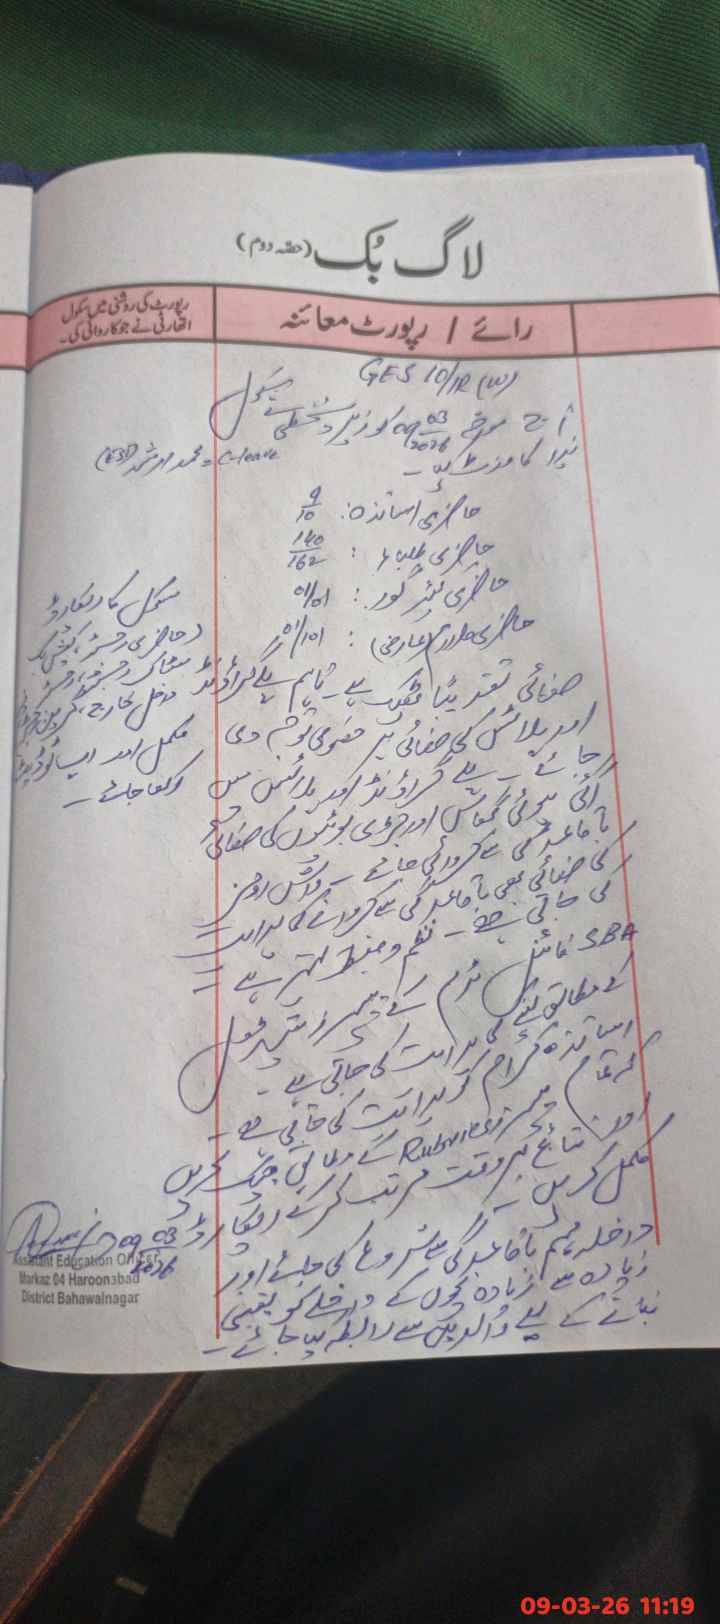 لاگ بُک (حصہ دوم)
رائے / رپورٹ معائنہ
رپورٹ کی روشنی میں سکول
اتھارٹی نے جو کاروائی کی۔
GES 10/1R (W)
آج مورخہ 09 03/2026 کو زیر دستخطی نے سکول
ہذا کا وزٹ کیا۔
محمد ارشد (EST) = C-leave
حاضری اساتذہ: 9/10
حاضری طلباء: 140/162
حاضری کیئر گور: 01/01
حاضری ملازم (عارضی): 01/01
صفائی تقریباً ٹھیک ہے۔ تاہم پلے گراؤنڈ
اور پلاٹس کی صفائی پر خصوصی توجہ دی
جائے۔ پلے گراؤنڈ اور پلاٹس میں
اگی ہوئی گھاس اور جڑی بوٹیوں کی صفائی
باقاعدگی سے کروائی جائے۔ واش رومز
کی صفائی بھی باقاعدگی سے کروانے کی ہدایت
کی جاتی ہے۔ نظم و ضبط بہتر ہے۔
SBA فائنل ٹرم کے پیپرز شیڈول
کے مطابق لینے کی ہدایت کی جاتی ہے۔
اساتذہ کرام کو ہدایت کی جاتی ہے
کہ تمام پیپرز Rubrics کے مطابق چیک کریں
اور نتائج بروقت مرتب کر کے ریکارڈ
مکمل کریں۔
داخلہ مہم باقاعدگی سے شروع کی جائے اور
زیادہ سے زیادہ بچوں کے داخلے کو یقینی
بنانے کے لیے والدین سے رابطہ کیا جائے۔
سکول کا ریکارڈ
(حاضری رجسٹر، کیش بک
داخل خارج،
مکمل اور اپ ٹو ڈیٹ
رکھا جائے۔
09 03/2026
Assistant Education Officer
Markaz 04 Haroonabad
District Bahawalnagar
09-03-26 11:19